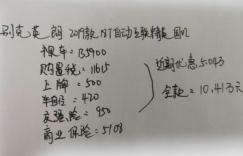 别克英朗 2019款 MT自动互联精英 国VI
裸车=135900
购置税=11615
上牌=500
车船=420
交强险=950
商业保险=5108
近期优惠 5.043
全款=10.413天